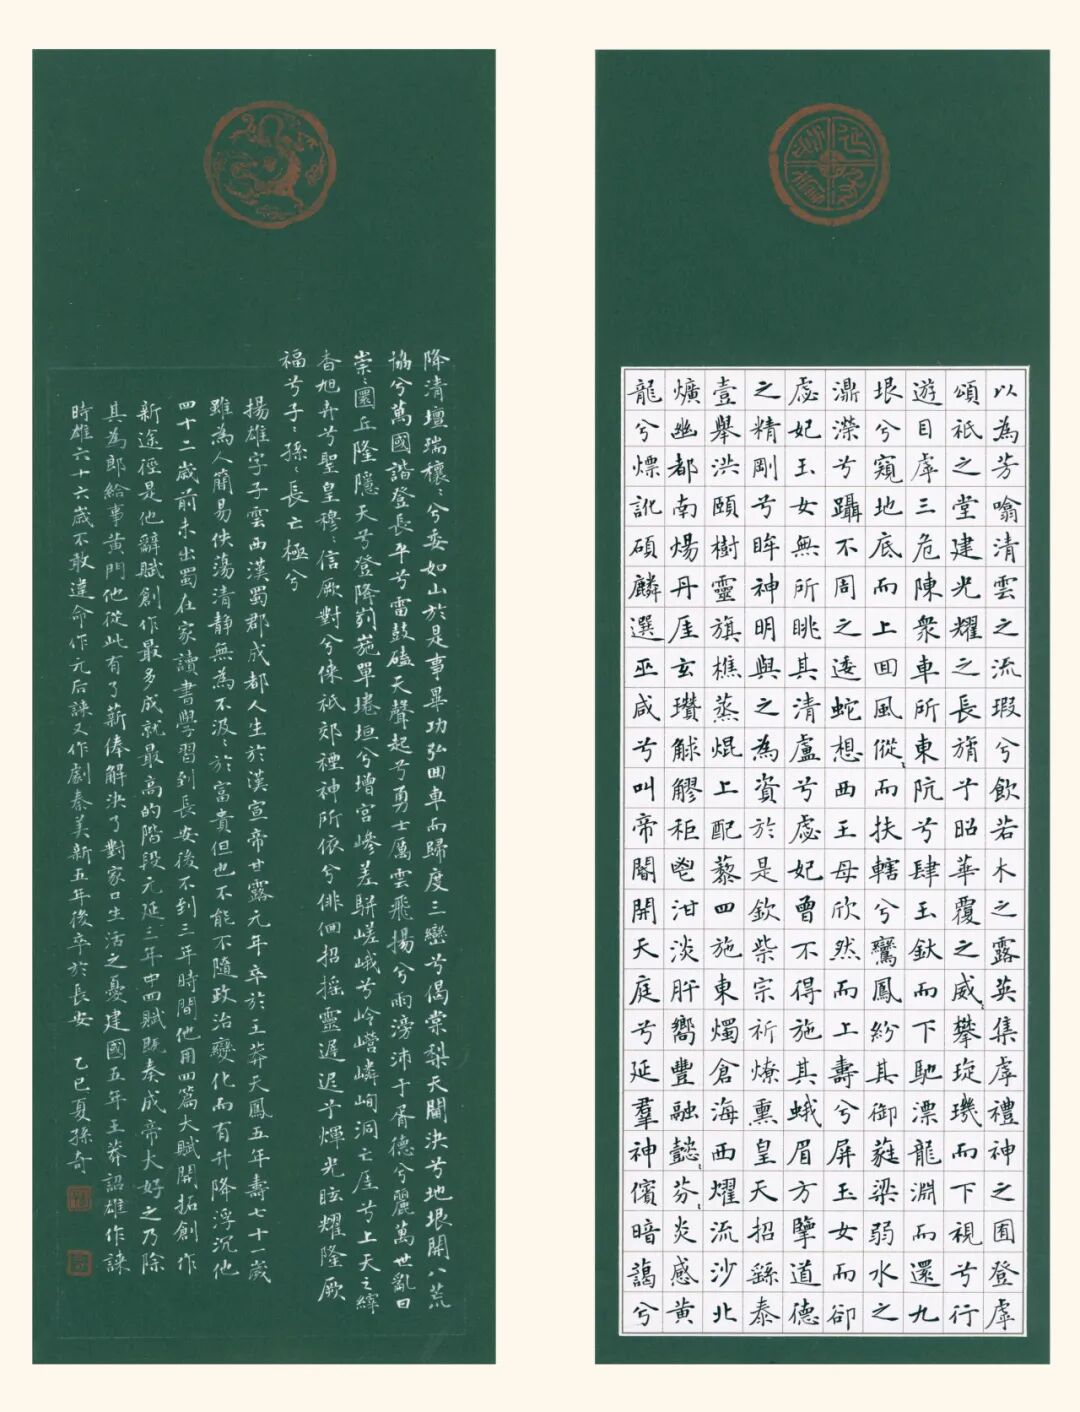 以為芳噏清雲之流瑕兮飲若木之露英集虖禮神之囿登虖
頌祇之堂建光燿之長旓兮昭華覆之威〻攀琁璣而下視兮行
遊目虖三危陳衆車所東阬兮肆玉釱而下馳漂龍淵而還九
垠兮窺地底而上回風傱〻而扶轄兮鸞鳳紛其御蕤梁弱水之
濎濴兮躡不周之逶蛇想西王母欣然而上壽兮屏玉女而卻
虙妃玉女無所眺其清盧兮虙妃曾不得施其蛾眉方擥道德
之精剛兮眸神明與之為資於是欽柴宗祈燎熏皇天招繇泰
壹舉洪頤樹靈旗樵蒸焜上配藜四施東燭倉海西燿流沙北
爌幽都南煬丹厓玄瓚觩䚧秬鬯泔淡肸嚮豐融懿〻芬〻炎感黃
龍兮熛訛碩麟選巫咸兮叫帝閽開天庭兮延羣神儐暗藹兮
降清壇瑞穰〻兮委如山於是事畢功弘回車而歸度三巒兮偈棠梨天閫決兮地垠開八荒
協兮萬國諧登長平兮雷鼓磕天聲起兮勇士厲雲飛揚兮雨滂沛于胥德兮麗萬世亂曰
崇〻圜丘隆隱天兮登降峛崺單埢垣兮增宮嵾差駢嵯峨兮岭巆嶙峋洞亡厓兮上天之縡
杳旭卉兮聖皇穆〻信厥對兮倈祇郊禋神所依兮俳佪招搖靈遅迟兮煇光眩燿隆厥
福兮子〻孫〻長亡極兮
揚雄字子雲西漢蜀郡成都人生於漢宣帝甘露元年卒於王莽天鳳五年壽七十一歲
雖為人簡易佚蕩清静無為不汲〻於富貴但也不能不隨政治變化而有升降浮沉他
四十二歲前未出蜀在家讀書學習到長安後不到三年時間他用四篇大賦開拓創作
新途徑是他辭賦創作最多成就最高的階段元延三年中四賦既奏成帝大好之乃除
其為郎給事黃門他從此有了薪俸解決了對家口生活之憂建國五年王莽詔雄作誄
時雄六十六歲不敢違命作元后誄又作劇秦美新五年後卒於長安 乙巳夏孫奇